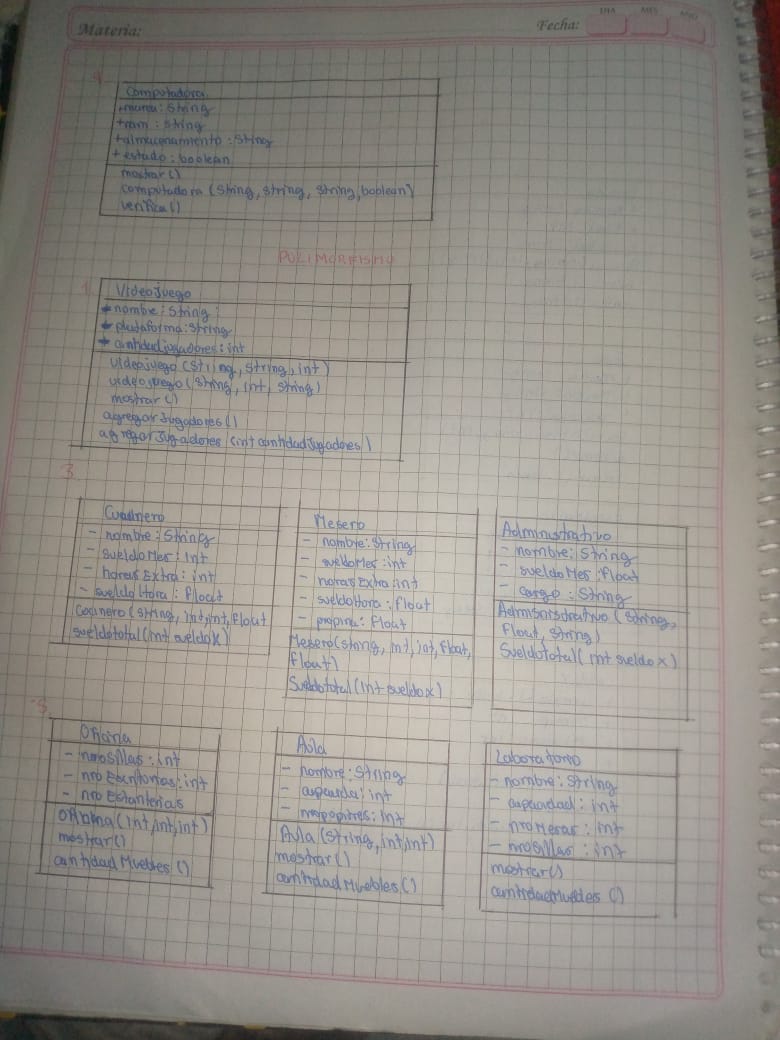 Materia:
Fecha:
DIA MES AÑO
Computadora
+marca: String
+ram: String
+almacenamiento: String
+estado: boolean
mostrar()
computadora (String, String, String, boolean)
verifica()
POLIMORFISMO
1
Videojuego
+nombre: String
+plataforma: String
+cantidadjugadores: int
videojuego (String, String, int)
videojuego (String, int, String)
mostrar()
agregarJugadores()
agregarJugadores (int cantidadjugadores)
3
Cocinero
- nombre: String
- sueldoMes: Int
- horasExtra: int
- sueldoHora: float
Cocinero (String, int, int, float
sueldototal (int sueldox)
Mesero
- nombre: String
- sueldoMes: int
- horasExtra: int
- sueldoHora: float
- propina: float
Mesero (String, int, int, float,
float)
Sueldototal (Int sueldox)
Administrativo
- nombre: String
- sueldoMes: float
- cargo: String
Administrativo (String,
float, String)
Sueldototal (int sueldox)
5
Oficina
- nroSillas: int
- nroEscritorios: int
- nroEstanterias
Oficina (int, int, int)
mostrar()
cantidadMuebles ()
Aula
- nombre: String
- capacidad: int
- nropupitres: int
Aula (String, int, int)
mostrar()
cantidadMuebles ()
Laboratorio
- nombre: String
- capacidad: int
- nroMesas: int
- nroSillas: int
mostrar()
cantidadMuebles ()